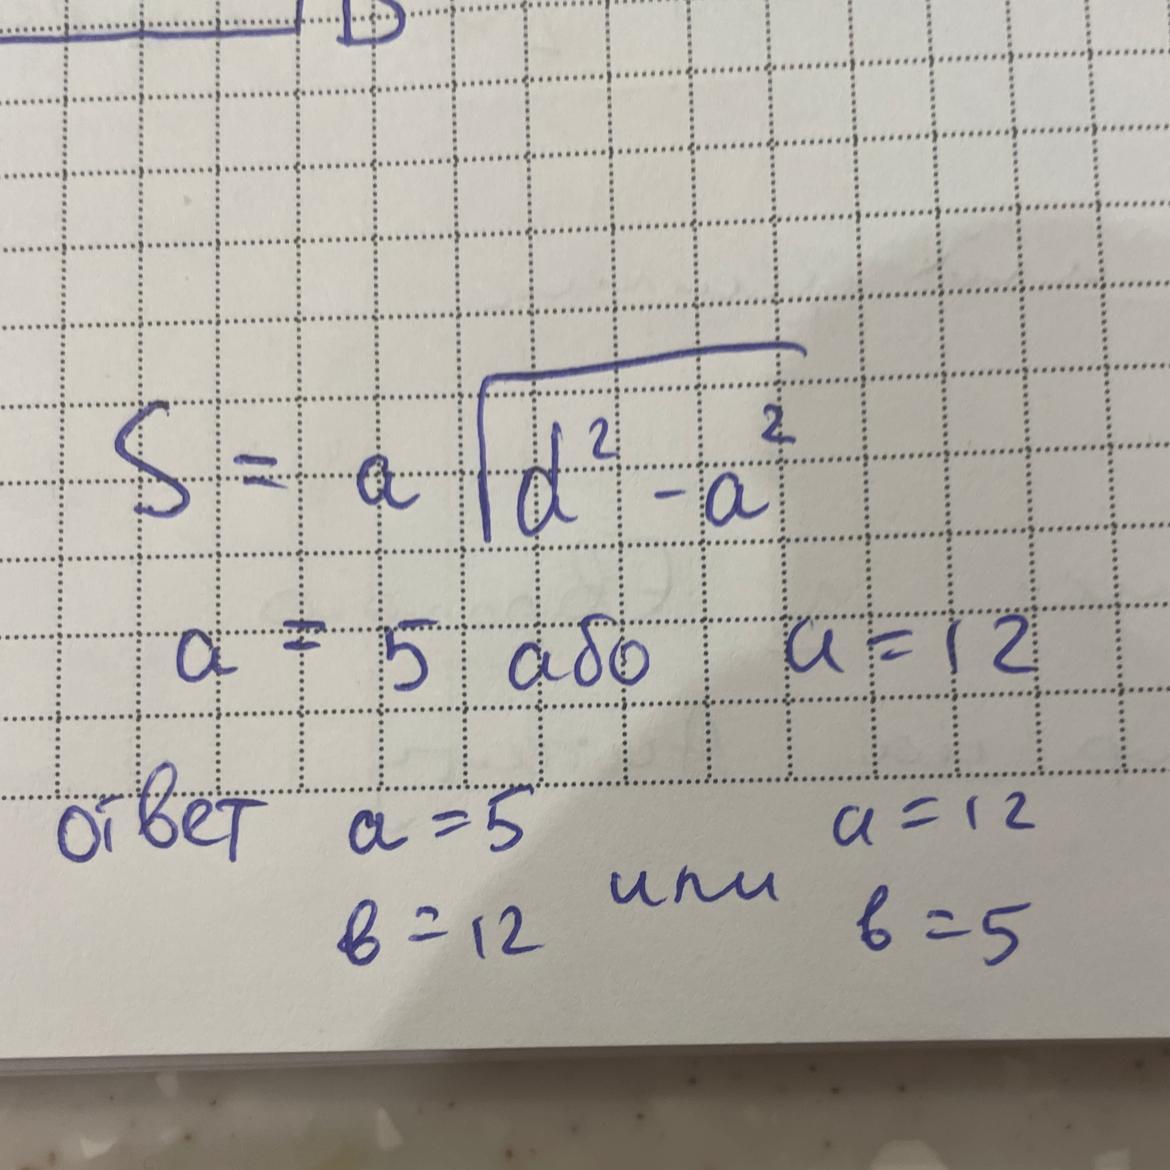 D
S = a √d² - a²
a = 5 або a = 12
ответ a = 5 a = 12
или
в = 12 в = 5